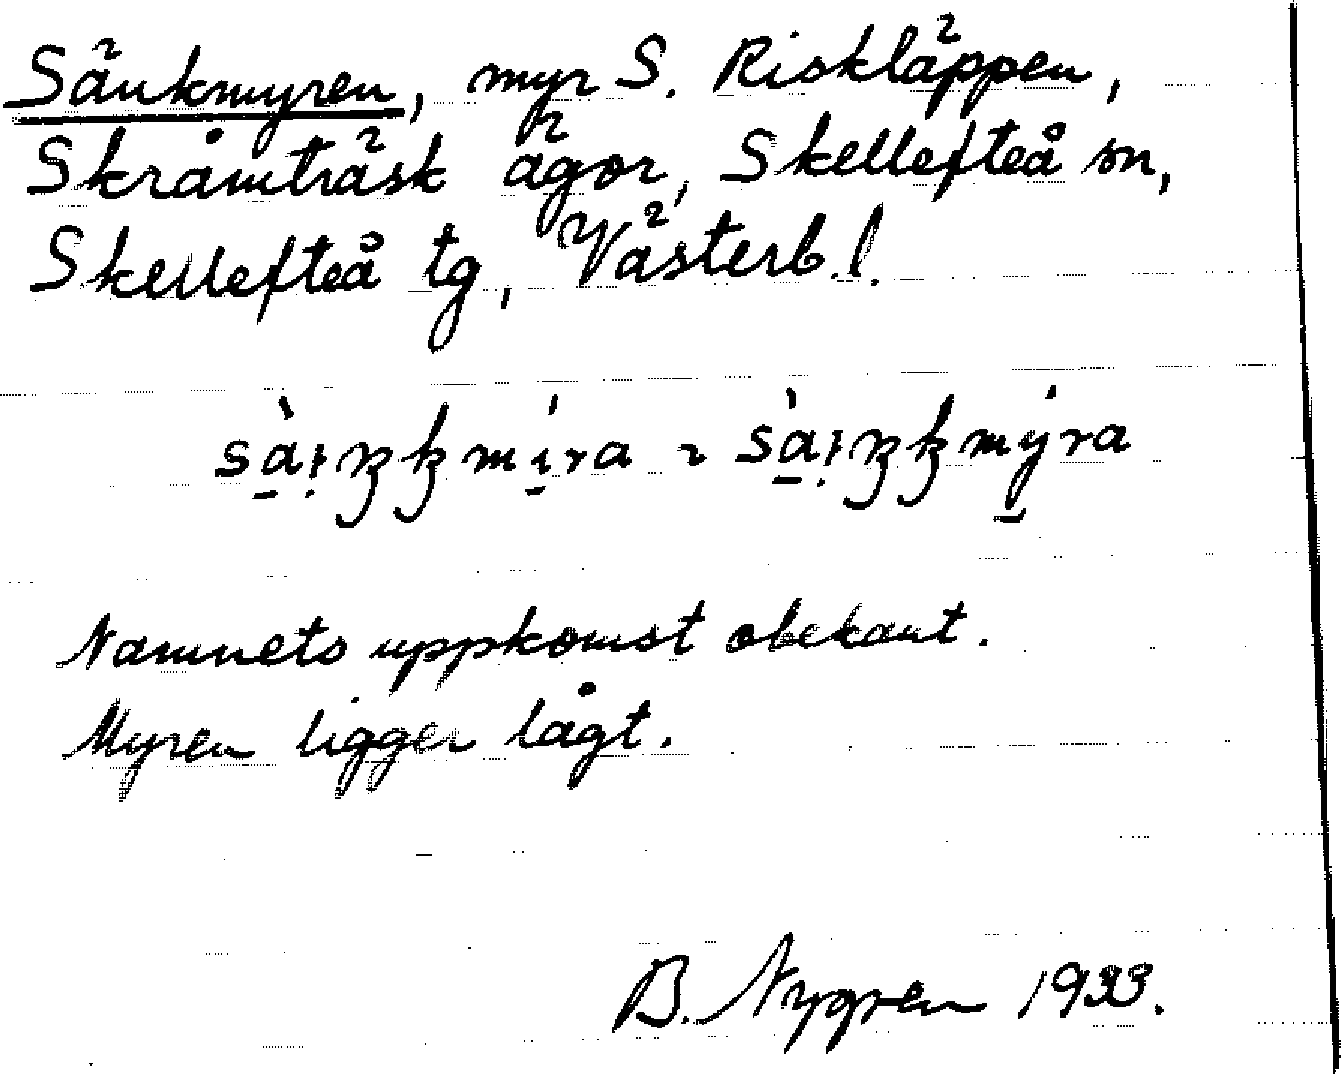 Sänkmyren, myr S. Riskläppen,
Skråmträsk ägor, Skellefteå sn,
Skellefteå tg, Västerb. l.
Namnets uppkomst obekant.
Myren ligger lågt.
B. Nygren 1933.